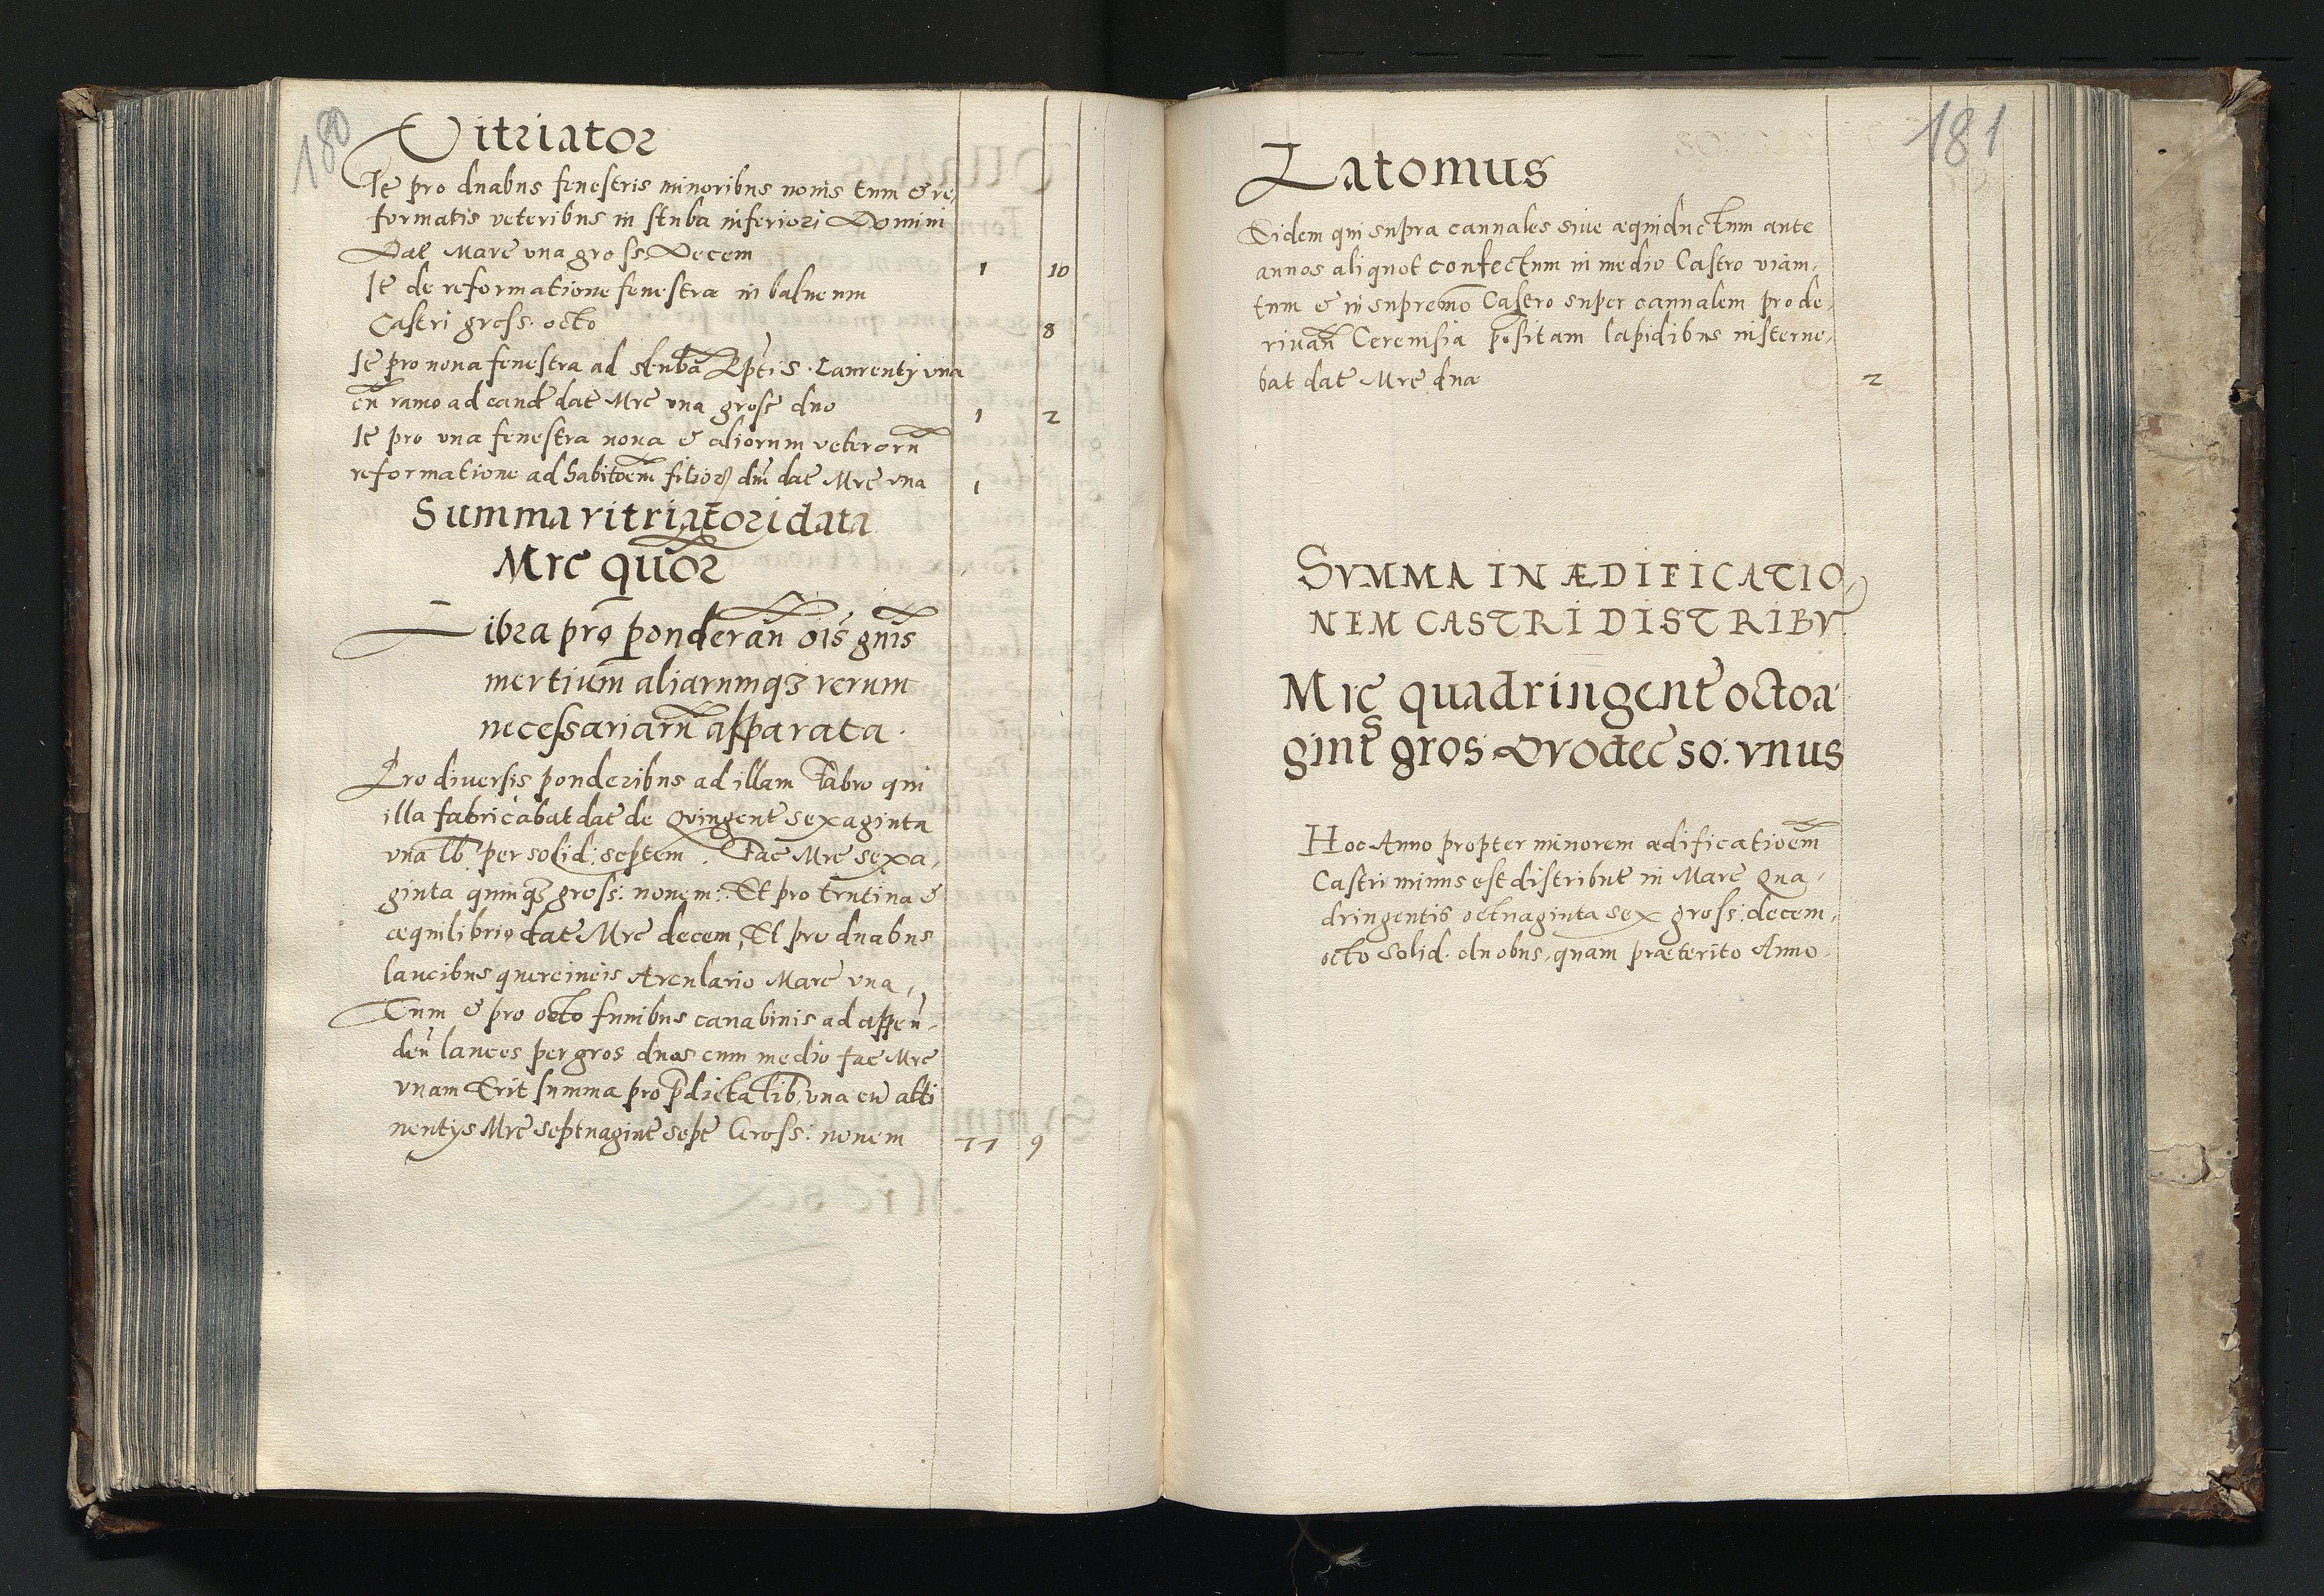 180
Vitriator
Itē pro duabus fenestris minoribus nouis tum & re,
formatis veteribus in stuba inferiori Domini
Dat̄ Marc̄ vna gross. Decem 1 10
Itē de reformatione fenestræ in balneum
Castri gross. octo 8
Itē pro noua fenestra ad stubā Rptis. Laurentÿ vna
cū ramo ad eandē dat̄ Mrc̄ vna gross̄ duo 1 2
Itē pro vna fenestra noua & aliorum veterorū
reformatione ad habitōem filiorꝝ dn̄i dat̄ Mrc̄ vna 1
Summa vitriatori data
Mrc̄ quōr
Libra pro ponderan̄ ois̄ gn̄is
mertium̄ aliarumqꝫ rerum
necessariarū apparata.
Pro diuersis ponderibus ad illam Fabro qui
illa fabricabat dat̄ de Quingent̄ sexaginta
vna lb per solid: septem. Fac̄ Mrc̄ sexa,
ginta quinqꝫ gross: nouem: Et pro trutina &
æquilibrio dat̄ Mrc̄ decem, Et pro duabus
lancibus quercineis Arculario Marc̄ vna,
Tum & pro octo funibus canabinis ad appen̄-
den̄ lances per gros duos cum medio fac̄ Mrc̄
vnam Erit summa pro p̄dicta lib. vna cū atti
nentÿs Mrc̄ septuagint̄ sept̄ Gross: nouem 77 9
181
Latomus
Eidem qui supra cannales siue æquiductum ante
annos aliquot confectum in medio Castro viam,
tum & in supremo Castro super cannalem pro de,
riuan̄ Cereuisia positam lapidibus insterne,
bat dat̄ Mrc̄ duæ 2
SVMMA IN ÆDIFICATIO,
NEM CASTRI DISTRIBV.
Mrc̄ quadringent̄ octoa
gint̄ gros Dvodec̄ so: vnus
Hoc Anno propter minorem ædificatiōem
Castri minus est distribut̄ in Marc̄ Qua,
dringentis octuaginta sex gross: decem,
octo Solid. duobus, quam præterito Anno.